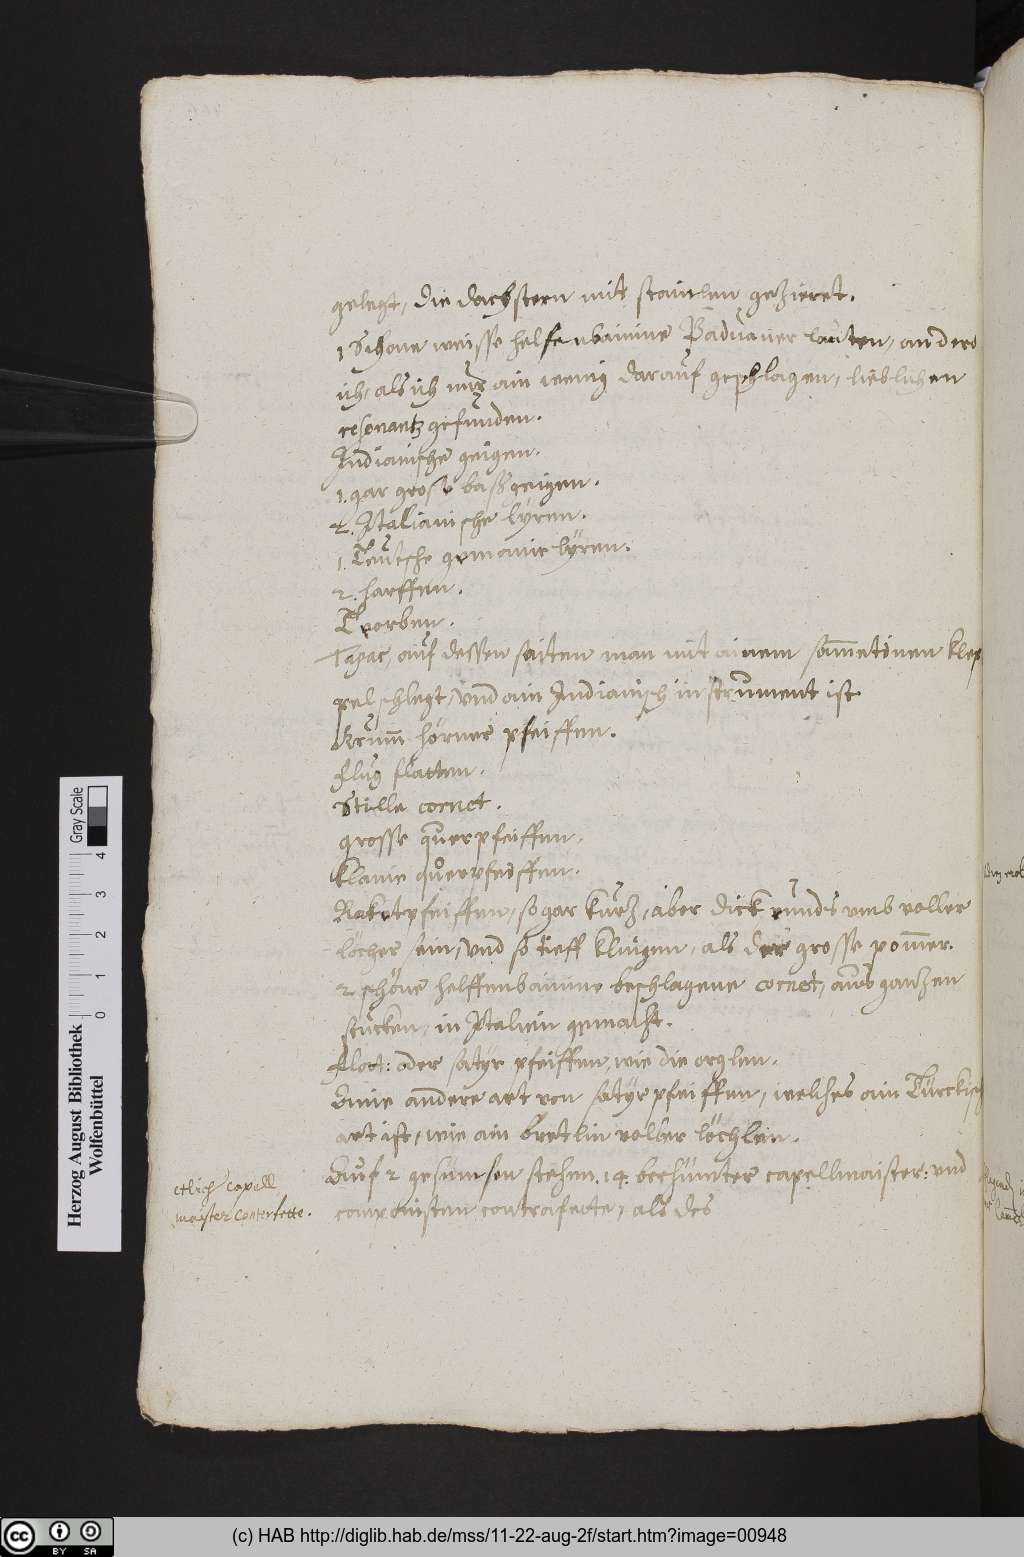 gelegt, die dachstern mit stainlen gezieret.
1 Schone weisse helfenbainine Paduaner lauten, an derd
ich, als ich nur ain wenig darauf geschlagen, lieblichen
resonantz gefunden.
Indianische geigen.
1. gar grose baßgeigen.
2. Italianische lÿren.
1. Teutsche gemaine lÿren.
2. harffen.
Teorben.
auf dessen saiten man mit ainem sam̅etinen klep
pel schlegt, vnd ain Indianisch instrument ist
Krum̅ hörner pfeiffen.
flug flatten.
Stille cornet.
grosse querpfeiffen.
klaine querpfeiffen.
Raketpfeiffen, so gar kurtz, aber dick runds vmb voller
löcher sein, vnd so tieff klingen, als der grosse pom̅er.
2 schöne helffenbainine beschlagene cornet, aus gantzen
stucken, in Italien gemacht.
flott: oder satÿr pfeiffen, wie die orglen.
Eine andere art von satÿrpfeiffen, welches ain Türckisch
art ist, wie ain bretlin voller löchlein.
Auf 2 gesimsen stehen 14. berhümter capellmaister: vnd
componisten contrafecte, als des
etlich Capell
maister Conterfette.
Herzog August Bibliothek
Wolfenbüttel
Gray Scale
0 1 2 3 4
cc BY SA
(c) HAB http://diglib.hab.de/mss/11-22-aug-2f/start.htm?image=00948